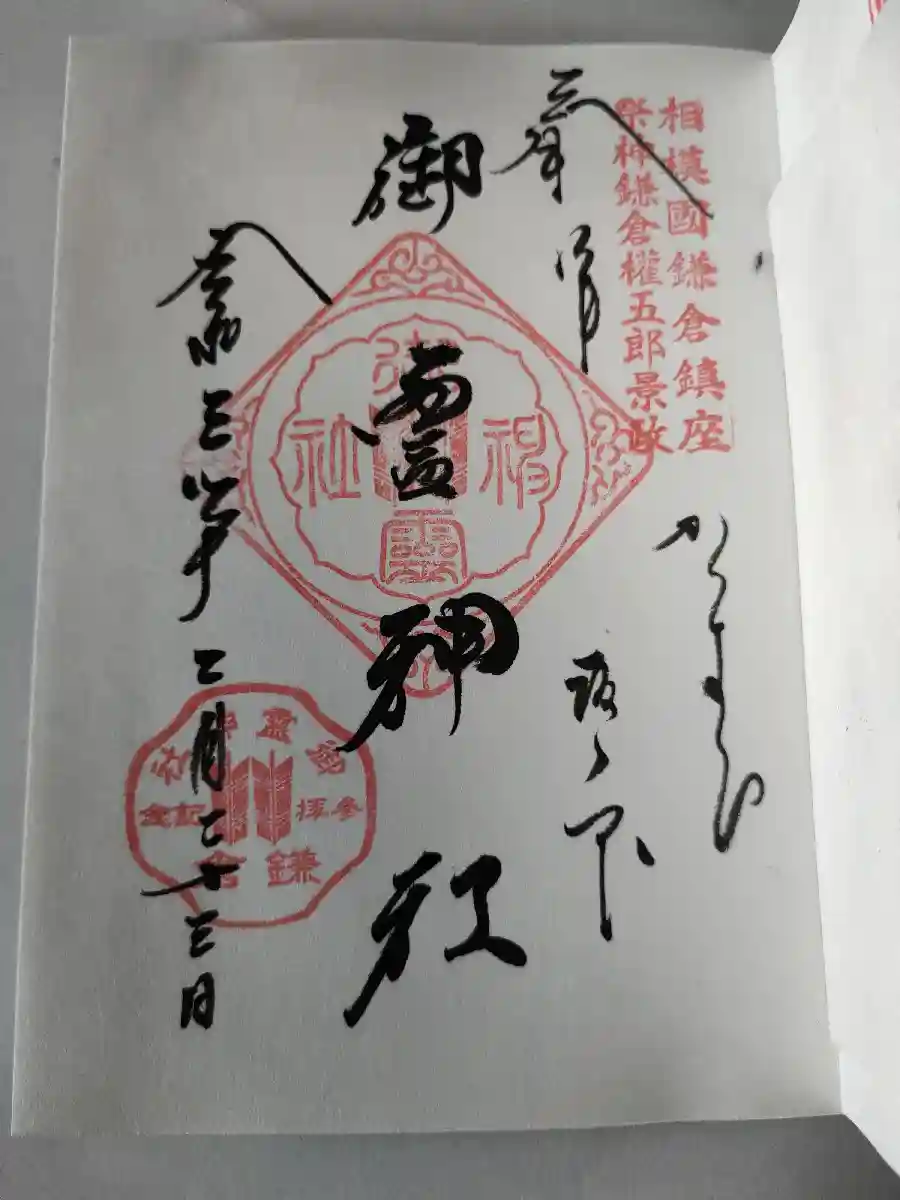 相模國鎌倉鎮座
祭神鎌倉權五郎景政
奉拝
かまくら
坂ノ下
御霊神社
御靈神社
令和三年二月二十三日
御霊神社
參拝記念
鎌倉